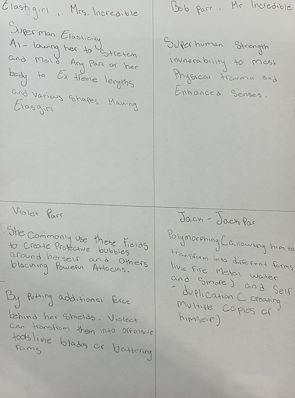 Elastigirl, Mrs. Incredible
Super man Elasticity
Al-lowing her to stretch
and mold Any Part or her
body to Extreme lengths
and various shapes Making
Elasgirl
Bob parr, Mr Incredible
Super human Strength
invnerability to most
Physical trauma and
Enhanced Senses.
Violet Parr
She commonly use these Fields
to create Protective bubbles
around herself and others
blocking Powerful Attacks.
By Putting additional Force
behind her shields. Violet
can transform them into offensive
tools like blades or battering
rams
Jack-Jack Par
Polymorphing (allowing him to
transform into different forms
like fire metal water
and smore) and self
-duplication (creating
multiple copies of
himself)